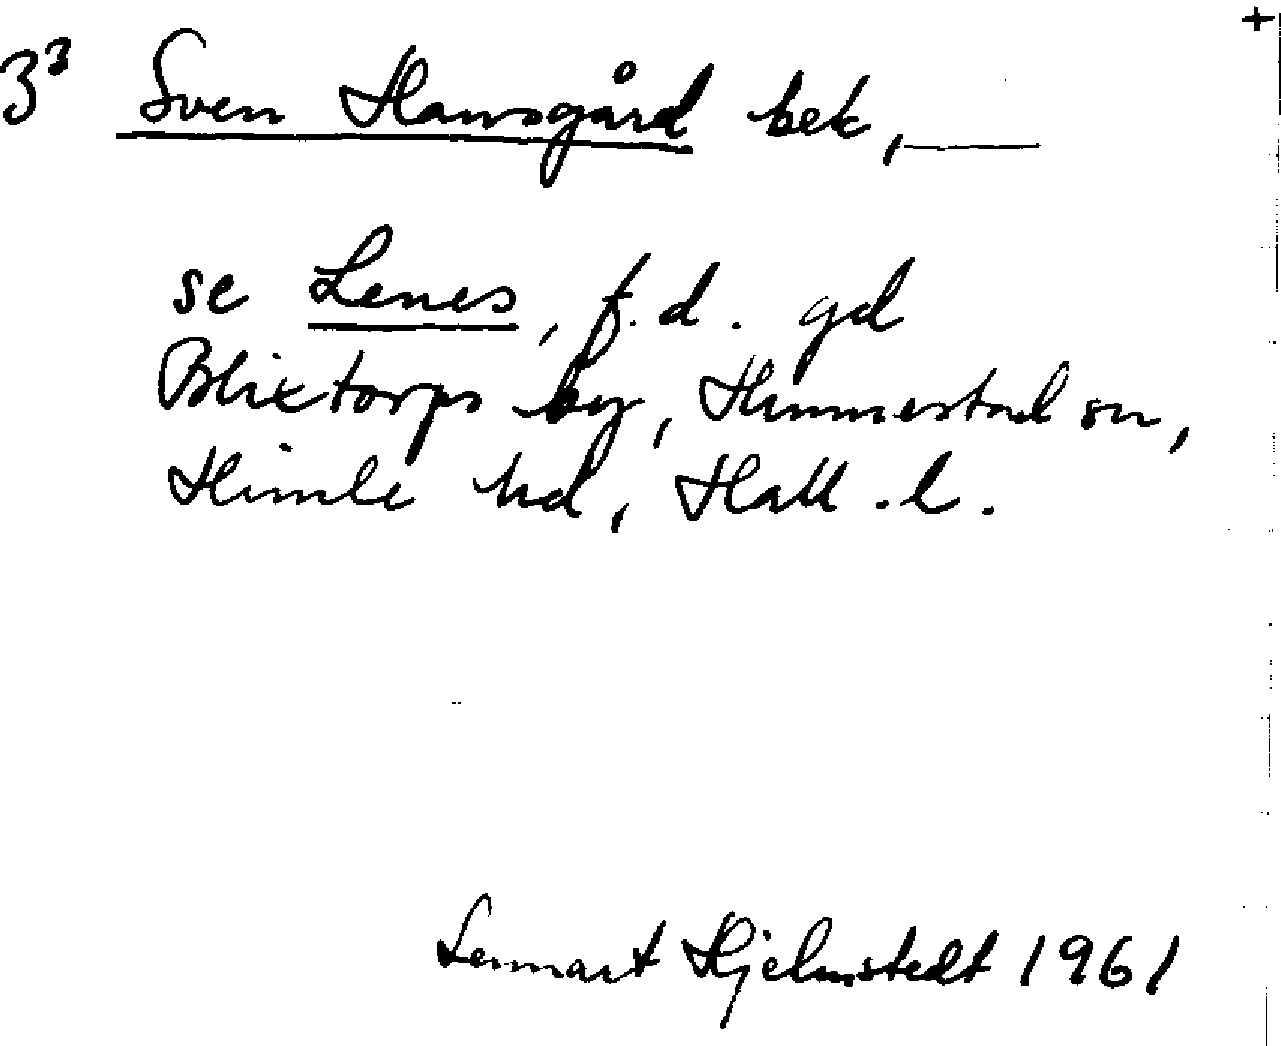 3³ Sven Hansgård bek, ——
se Lenes, f.d. gd
Blixtorps by, Hunnestad sn,
Himle hd, Hall. l.
Lennart Hjelmstedt 1961